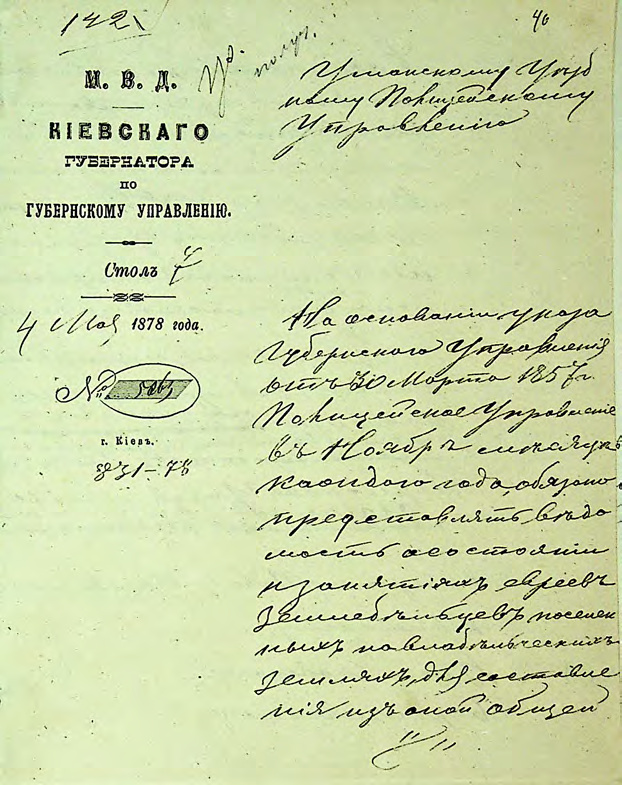 142
40
М. В. Д.
КІЕВСКАГО
ГУБЕРНАТОРА
ПО
ГУБЕРНСКОМУ УПРАВЛЕНІЮ.
Столъ
4 Мая 1878 года.
№
г. Кіевъ.
Уманскому Уѣзд
ному Полицейскому
Управленію
На основаніи указа
Губернскаго Управленія
отъ 30 Марта 1857 г.
Полицейское Управленіе
въ Ноябрѣ мѣсяцѣ
каждаго года, обязано
представлять вѣдо
мость о состояніи
и занятіяхъ евреевъ
земледѣльцевъ поселен
ныхъ на владѣльческихъ
земляхъ, для составле
нія изъ оной общей